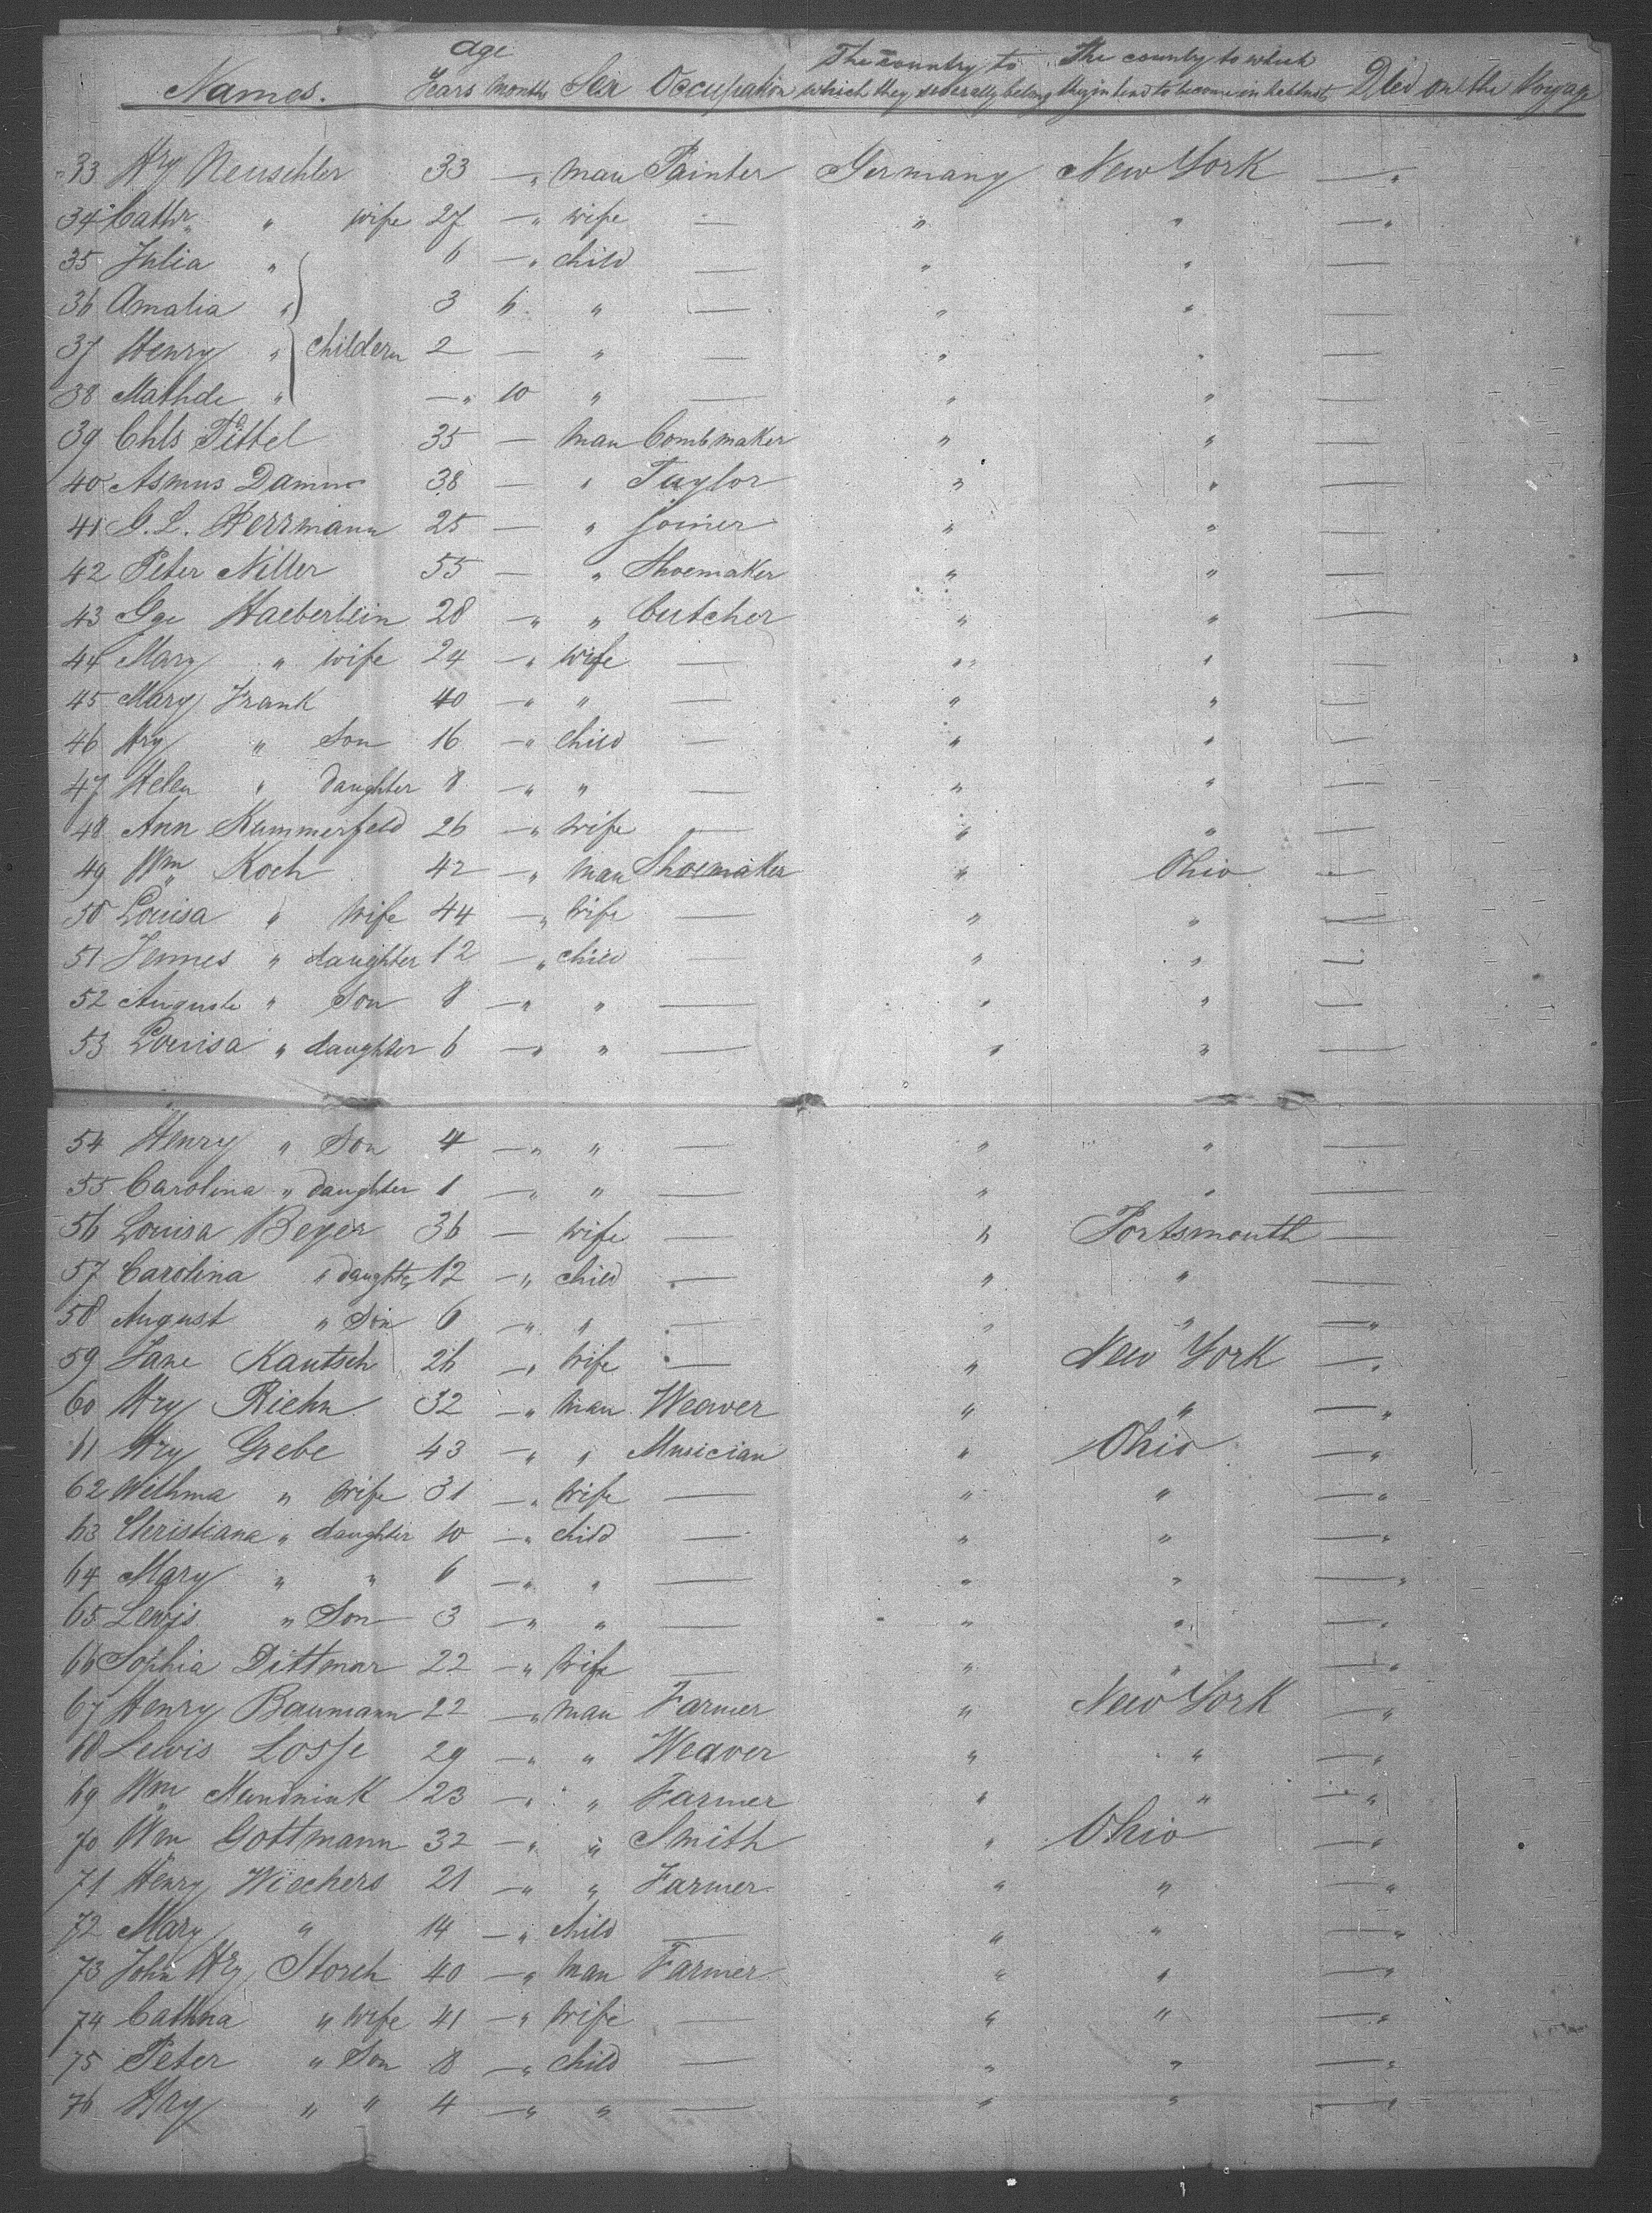 Names. Age Years Months Sex Occupation The country to which they severally belong The country to which they intend to become inhabitants Died on the Voyage
33 Hry Neuschler 33 — " man Painter Germany New York — "
34 Cathr " wife 27 — " wife — " " — "
35 Julia " 6 — " child — " " —
36 Amalia " 3 6 " — " " —
37 Henry " childern 2 — " — " " —
38 Mathde " — " 10 " — " " —
39 Chls Tittel 35 — man Combmaker " " —
40 Asmus Damm 38 — " Taylor " " —
41 G. L. Herrmann 25 — " Joiner " " —
42 Peter Niller 55 — " Shoemaker " " —
43 Gge Haeberlein 28 — " " butcher " " —
44 Mary " wife 24 — " wife — " " —
45 Mary Frank 40 — " " — " " —
46 Hry " Son 16 — " child — " " —
47 Helen " daughter 8 — " " — " " —
48 Ann Kummerfeld 26 — " wife — " " —
49 Wm Koch 42 — " man Shoemaker " Ohio —
50 Louisa " wife 44 — " wife — " " —
51 Jennes " daughter 12 — " child — " " —
52 Auguste " Son 8 — " " — " " —
53 Louisa " daughter 6 — " " — " " —
54 Henry " Son 4 — " " — " " —
55 Carolina " daughter 1 — " " — " " —
56 Louisa Beyer 36 — wife — " Portsmouth —
57 Carolina " daughter 12 — " child — " " —
58 August " Son 6 — " " — " " — "
59 Jane Kautsch 26 — " wife — " New York — "
60 Hry Riehn 32 — " man Weaver " " — "
61 Hry Grebe 43 — " " Musician " Ohio — "
62 Wilhma " wife 31 — " wife — " " — "
63 Christiana " daughter 10 — " child — " " — "
64 Mary " " 6 — " " — " " — "
65 Lewis " Son 3 — " " — " " — "
66 Sophia Dittmar 22 — " wife — " " — "
67 Henry Baumann 22 — " man Farmer " New York — "
68 Lewis Losse 29 — " " Weaver " " — "
69 Wm Mundnink 23 — " " Farmer " " — "
70 Wm Gottmann 32 — " " Smith " Ohio — "
71 Henry Wiechers 21 — " " Farmer " " — "
72 Mary " 14 — " child — " " — "
73 John Hry Storch 40 — " man Farmer " " — "
74 Cathna " wife 41 — " wife — " " — "
75 Peter " Son 8 — " child — " " — "
76 Hry " " 4 — " " — " " — "